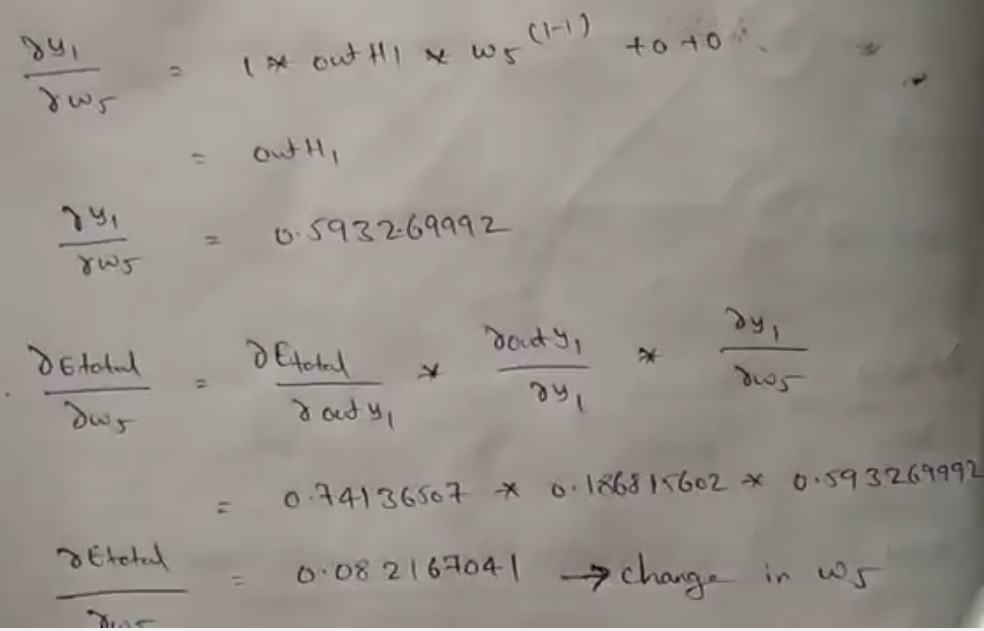 ∂y₁/∂w₅ = 1 * outH₁ * w₅^(1-1) + 0 + 0
= outH₁
∂y₁/∂w₅ = 0.593269992
∂Etotal/∂w₅ = ∂Etotal/∂outy₁ * ∂outy₁/∂y₁ * ∂y₁/∂w₅
= 0.74136507 * 0.186815602 * 0.593269992
∂Etotal/∂w₅ = 0.082167041 → change in w₅